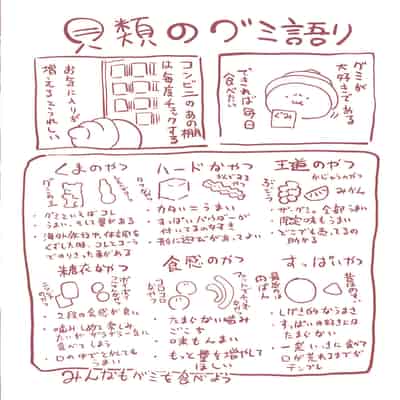 貝類のグミ語り
グミが
大好きである
できれば毎日
食べたい
ぐみ
コンビニのあの棚
は毎度チェックする
お気に入りが
増えるとうれしい
王道のやつ
かじゅうのやつ
ぶどう
みかん
・ザ・グミ。全部うまい
・限定味もうまい
・どこでも売ってるの
助かる
ハードなやつ
・かたい＝うまい
・すっぱいパウダーが
付いてるの好き
・形に遊びがあってよい
くまのやつ
・グミといえばコレ
うまいし、そして量がある
・海外旅行中、体調を
くずした時、コレとコーラ
でのりきった事がある
すっぱいやつ
・しげき的なうまさ
・すっぱいの好きには
たまらない
・一気に食べて
口が荒れるまでが
テンプレ
食感のやつ
コロコロ
・たまらない噛み
ごこち
・味もうまい
・もっと量を増やして
ほしい
糖衣なやつ
・2段の食感が良い
・噛みしめて楽しみ
たいがガラガラ一気に
食べてしまう
・口の中でとかしても
うまい
みんなもグミを食べよう